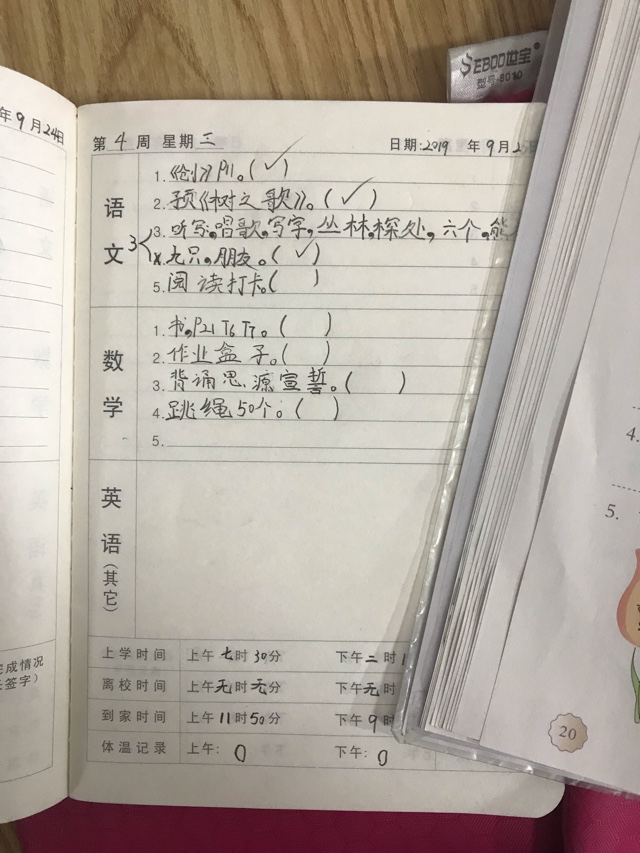 SEBOO世宝®
型号-8010
年9月24日
第4周 星期三 日期:2019 年9月2 日
语文
1.《创》P11。(✓)
2.预《树之歌》。(✓)
3.听写,唱歌,写字,丛林,深处,六个,熊
3
4.九只,朋友。(✓)
5.阅读打卡。( )
数学
1.书,P21 T6 T7。( )
2.作业盒子。( )
3.背诵思源宣誓。( )
4.跳绳50个。( )
5.
英语(其它)
上学时间 上午七时30分 下午二时1
离校时间 上午无时无分 下午无时
到家时间 上午11时50分 下午9时
体温记录 上午:0 下午:0
完成情况
签字)
4.
5.
20